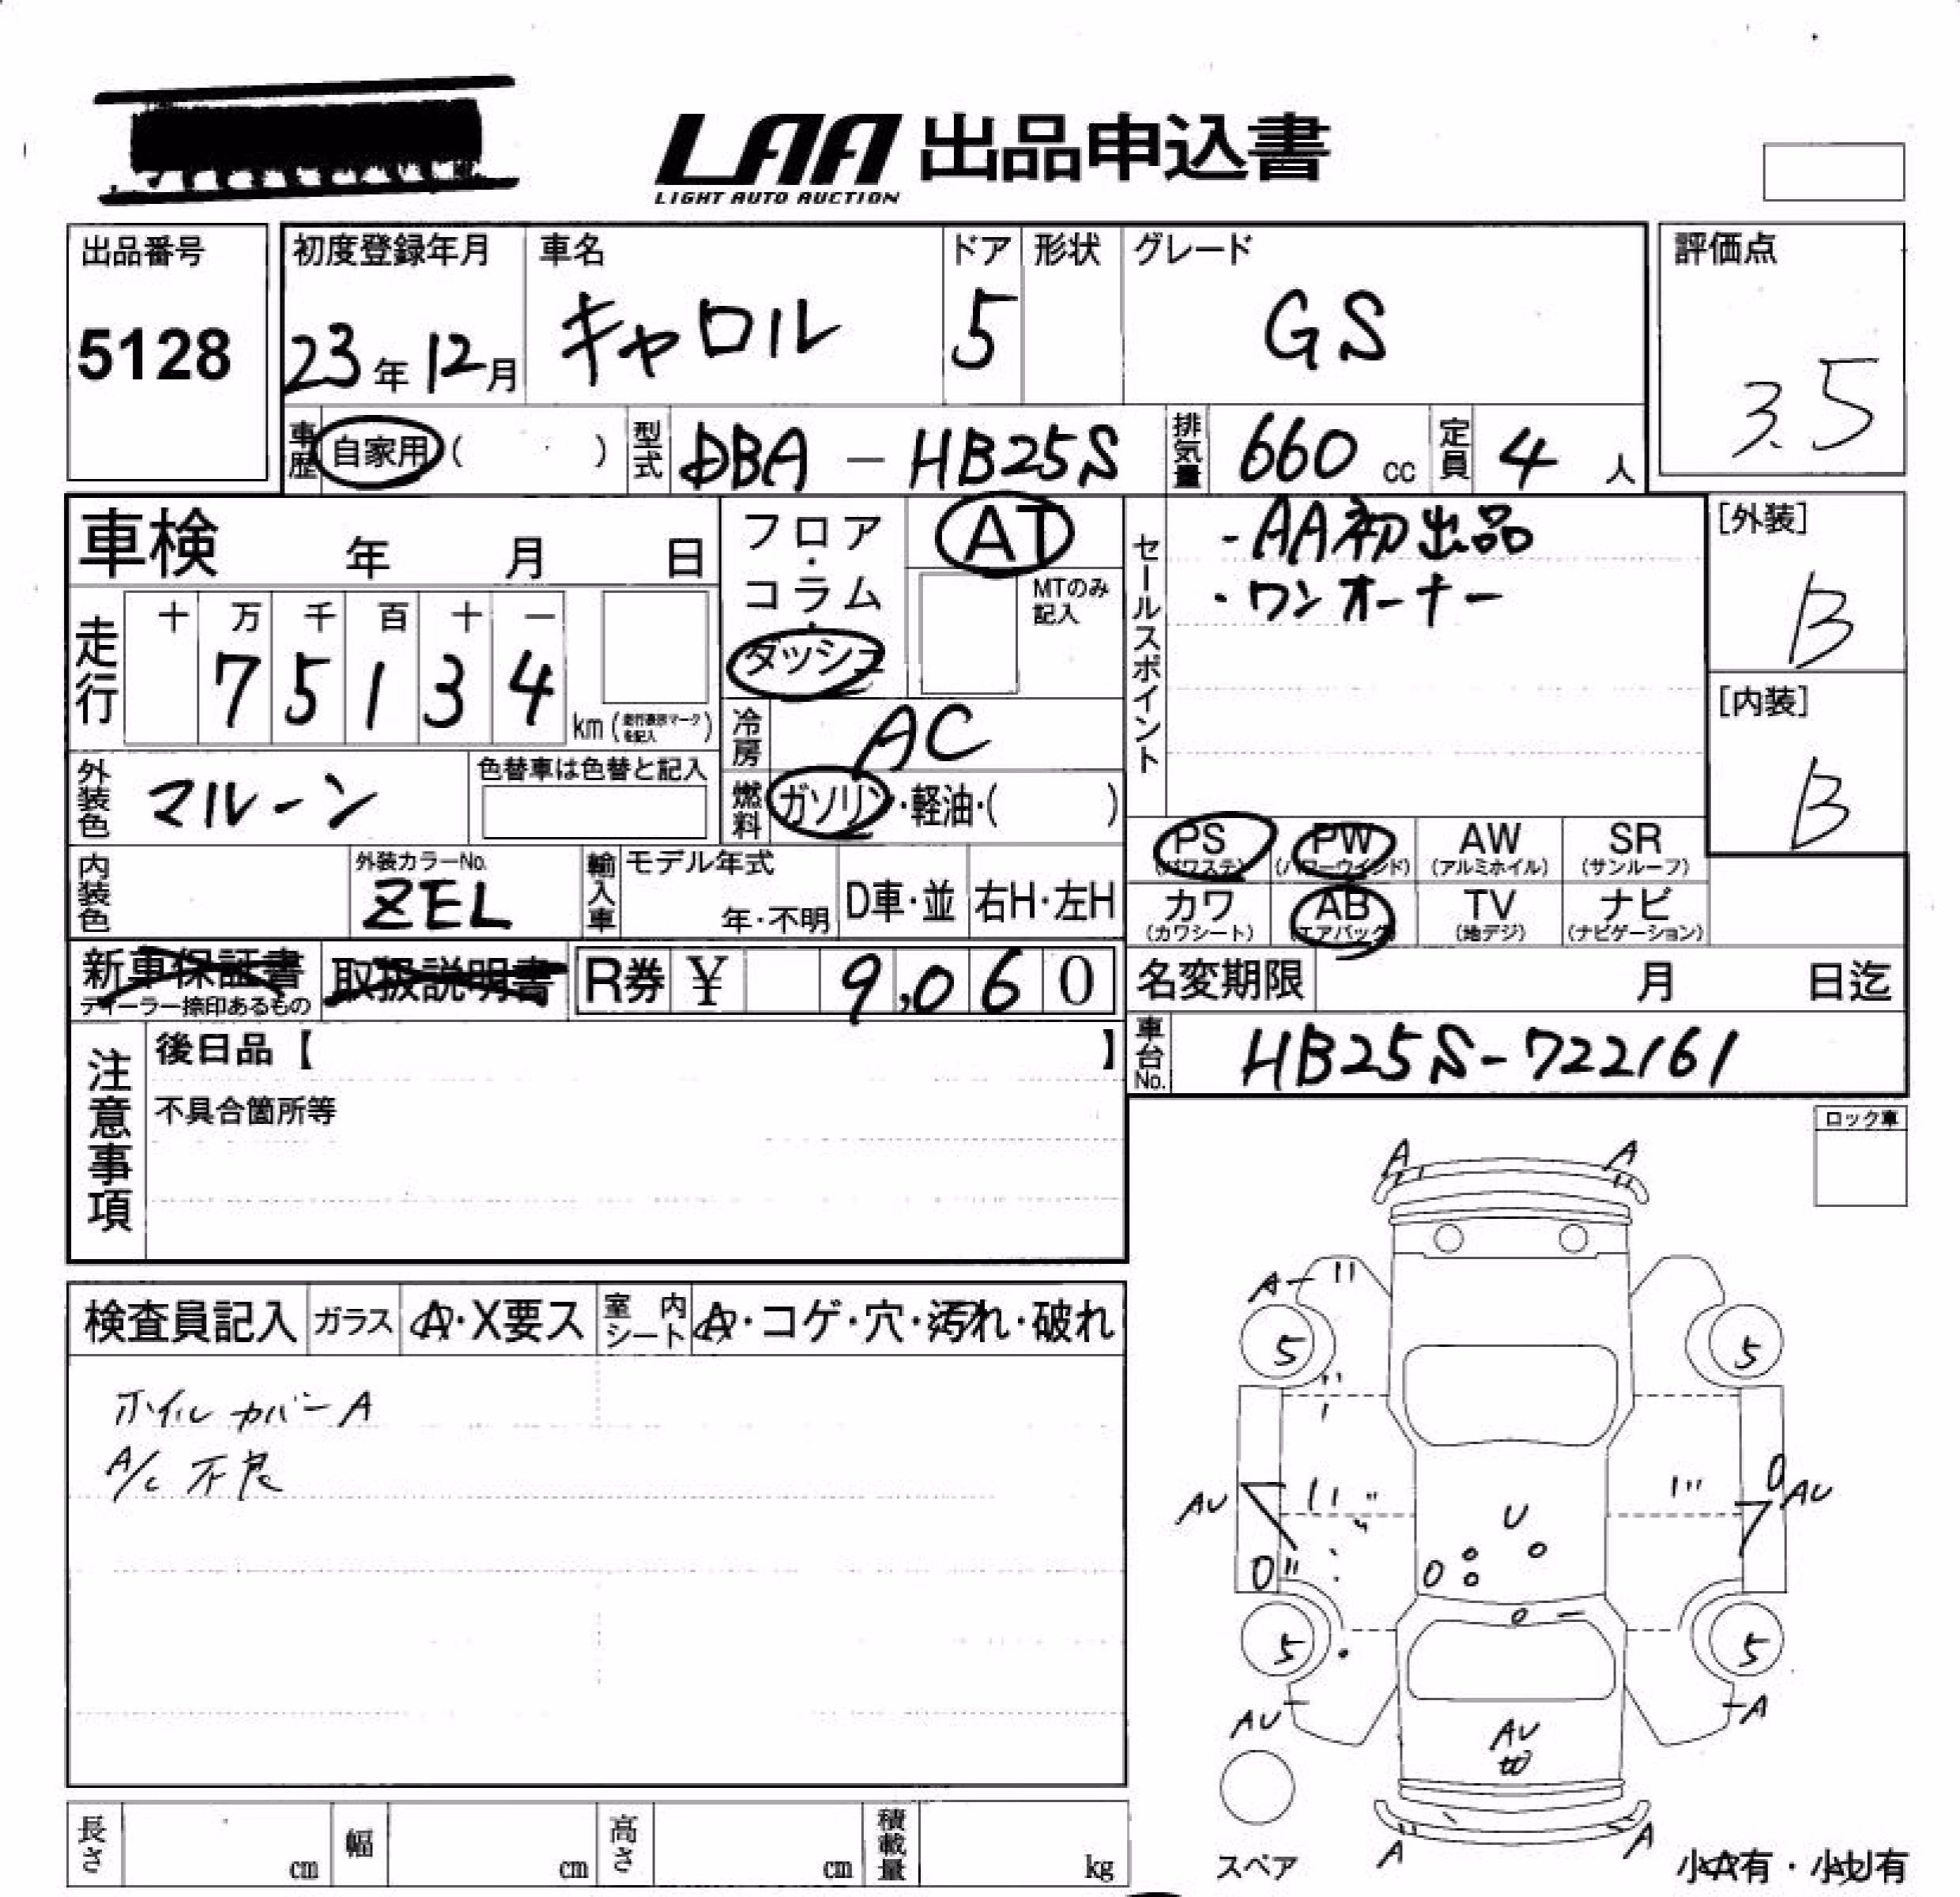 LAA 出品申込書
LIGHT AUTO AUCTION
出品番号
5128
初度登録年月
23年12月
車名
キャロル
ドア
5
形状
グレード
GS
評価点
3.5
車歴
自家用( )
型式
DBA - HB25S
排気量
660 cc
定員
4 人
車検 年 月 日
フロア・
コラム・
ダッシュ
AT
MTのみ
記入
セールスポイント
・AA初出品
・ワンオーナー
[外装]
B
[内装]
B
走行
十 万 千 百 十 一
7 5 1 3 4
km (走行表示マークを記入)
冷房
AC
外装色
マルーン
色替車は色替と記入
燃料
ガソリン・軽油・( )
PS
(パワステ)
PW
(パワーウインド)
AW
(アルミホイル)
SR
(サンルーフ)
内装色
外装カラーNo.
ZEL
輸入車
モデル年式
年・不明
D車・並
右H・左H
カワ
(カワシート)
AB
(エアバッグ)
TV
(地デジ)
ナビ
(ナビゲーション)
新車保証書
ディーラー捺印あるもの
取扱説明書
R券 ¥ 9,060
名変期限 月 日迄
車台No.
HB25S-722161
注意事項
後日品【 】
不具合箇所等
ロック車
検査員記入
ガラス
A・X要ス
室内シート
A・コゲ・穴・汚れ・破れ
ホイルカバーA
A/C 不良
A
A
A
5
5
AU
AU
U
5
5
AU
A
AU
A
A
スペア
小A有・小U有
長さ cm
幅 cm
高さ cm
積載量 kg